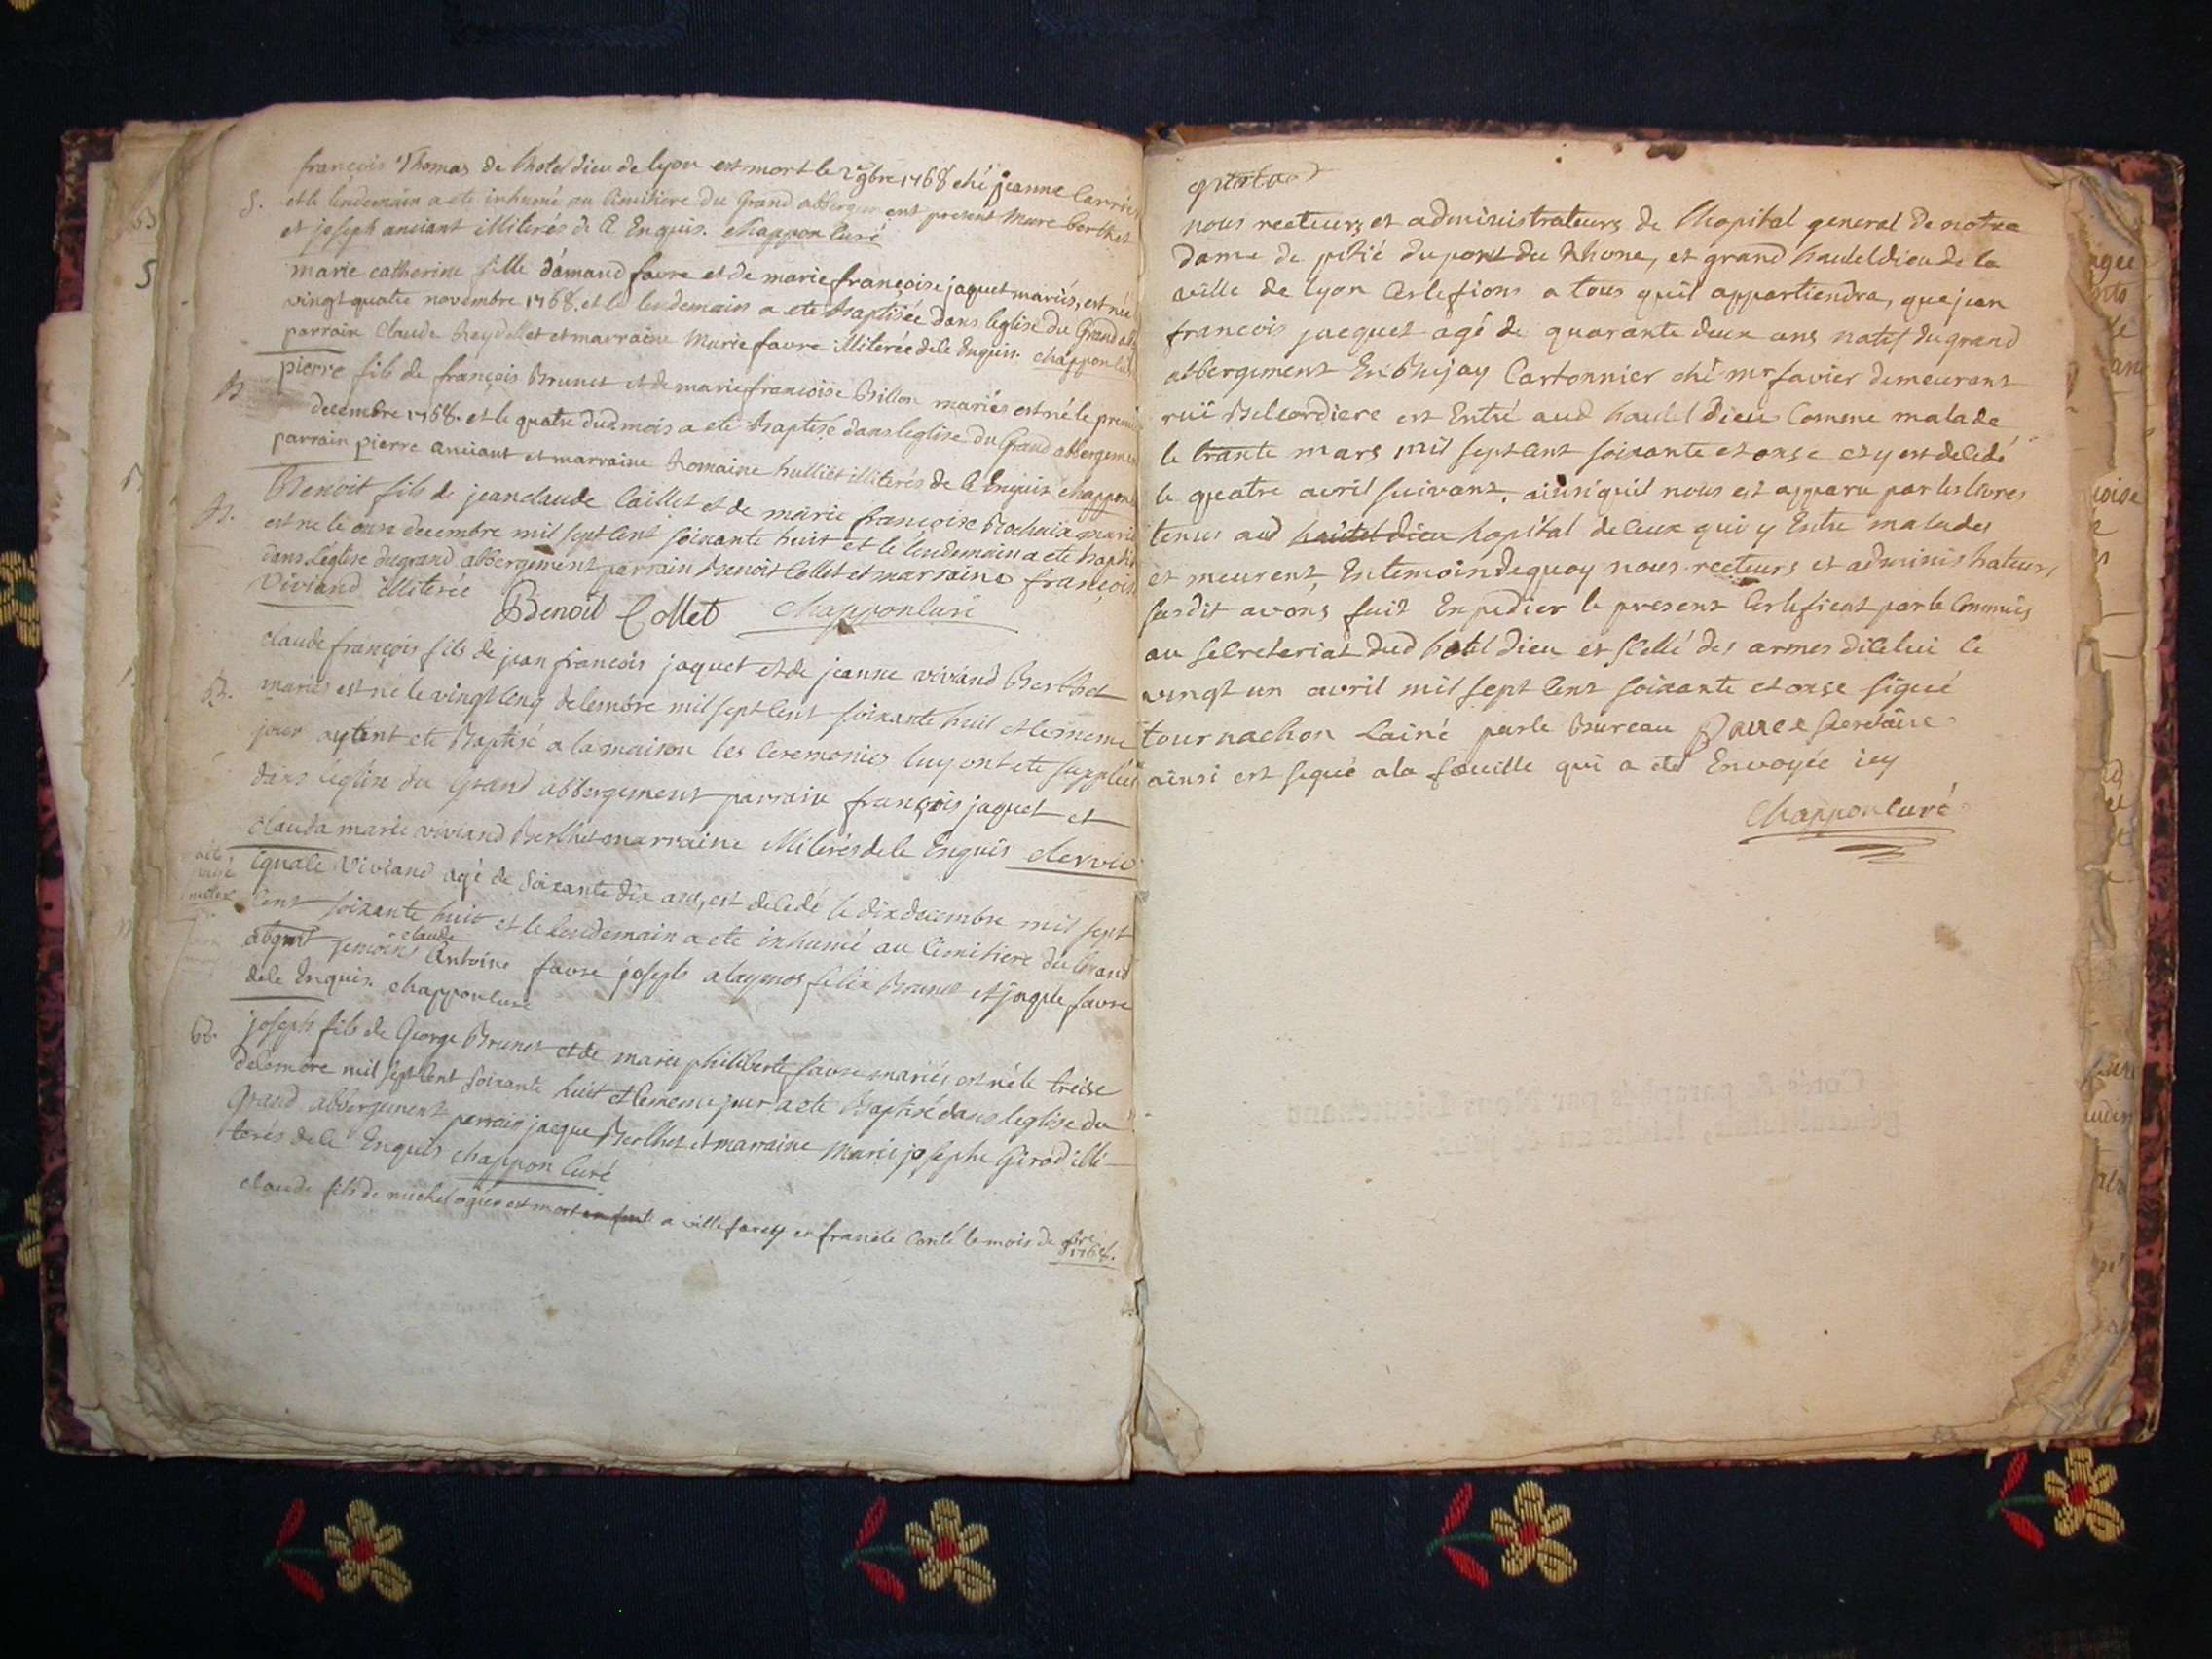 françois Thomas de lhotel dieu de lyon est mort le 2 9bre 1768 ché jeanne Carrier
S. et le lendemain a ete inhumé au Cimitiere du Grand abbergement present Marc berthet
et joseph anciant illiterés de ce Enquis. Chappon Curé
marie catherine fille d'amand favre et de marie françoise jaquet mariés, est née
vingt quatre novembre 1768. et le lendemain a ete Baptisée dans leglise du Grand ab
parrain Claude Reydellet et marraine Marie favre illiterée de ce Enquis. Chappon Curé
B pierre fils de françois Brunet et de marie francoise Billon mariés est né le premier
decembre 1768. et le quatre dud mois a ete Baptisé dans leglise du Grand abbergement
parrain pierre anciant et marraine Romaine hulliet illiterés de ce Enquis chappon
B. Benoit fils de jean claude Caillet et de marie françoise Rochaix mariés
est ne le onze decembre mil sept cent soixante huit et le lendemain a ete Baptisé
dans l'église du grand abbergement parrain Benoit Collet et marraine françoise
Viviand illiterée Benoit Collet Chappon Curé
claude françois fils de jean francois jaquet et de jeanne viviand Berthet
B. mariés est né le vingt cinq decembre mil sept cent soixante huit et le meme
jour ayant ete Baptisé a la maison les Ceremonies luy ont ete supplées
dans l'église du Grand abbergement parrain françois jaquet et
Clauda marie viviand Berthet marraine illiterés de ce Enquis
Viviand agé de soixante dix ans, est decedé le dix decembre mil sept
cent soixante huit et le lendemain a ete inhumé au Cimitiere du Grand
abgmt temoins claude Antoine favre joseph felix Brunet et jaque favre
de ce Enquis. chappon curé
B. joseph fils de George Brunet et de marie philiberte favre mariés est né le treize
decembre mil sept cent soixante huit et le meme jour a ete Baptisé dans leglise du
Grand abbergement parrain jacque Berthet et marraine Marie josephe Girod illi-
terés de ce Enquis chappon Curé
claude fils de michel ogier est mort a en franche Conté le mois de 9bre 1768.
nous recteurs et administrateurs de lhopital general de notre
dame de pitié du pont du Rhone, et grand hautel dieu de la
ville de lyon Certefions a tous quil appartiendra, que jean
francois jacquet agé de quarante deux ans natif du grand
abbergement En Bujay Cartonnier ché mr favier demeurant
ruë Belcordiere est Entré aud hautel Dieu Comme malade
le trante mars mil sept cent soixante et onze et y est decedé
le quatre avril suivant, ainsi quil nous est apparu par les livres
tenus aud hautel dieu hopital de ceux qui y Entre malades
et meurent, En temoin de quoy nous recteurs et administrateurs
susdit avons fait Expedier le present Certificat par le Commis
au secreteriat dud hotel Dieu et scellé des armes dicelui le
vingt un avril mil sept cent soixante et onze signé
tournachon Lainé par le Bureau secretaire
ainsi est signé a la feuille qui a eté Envoyée icy
Chappon Curé